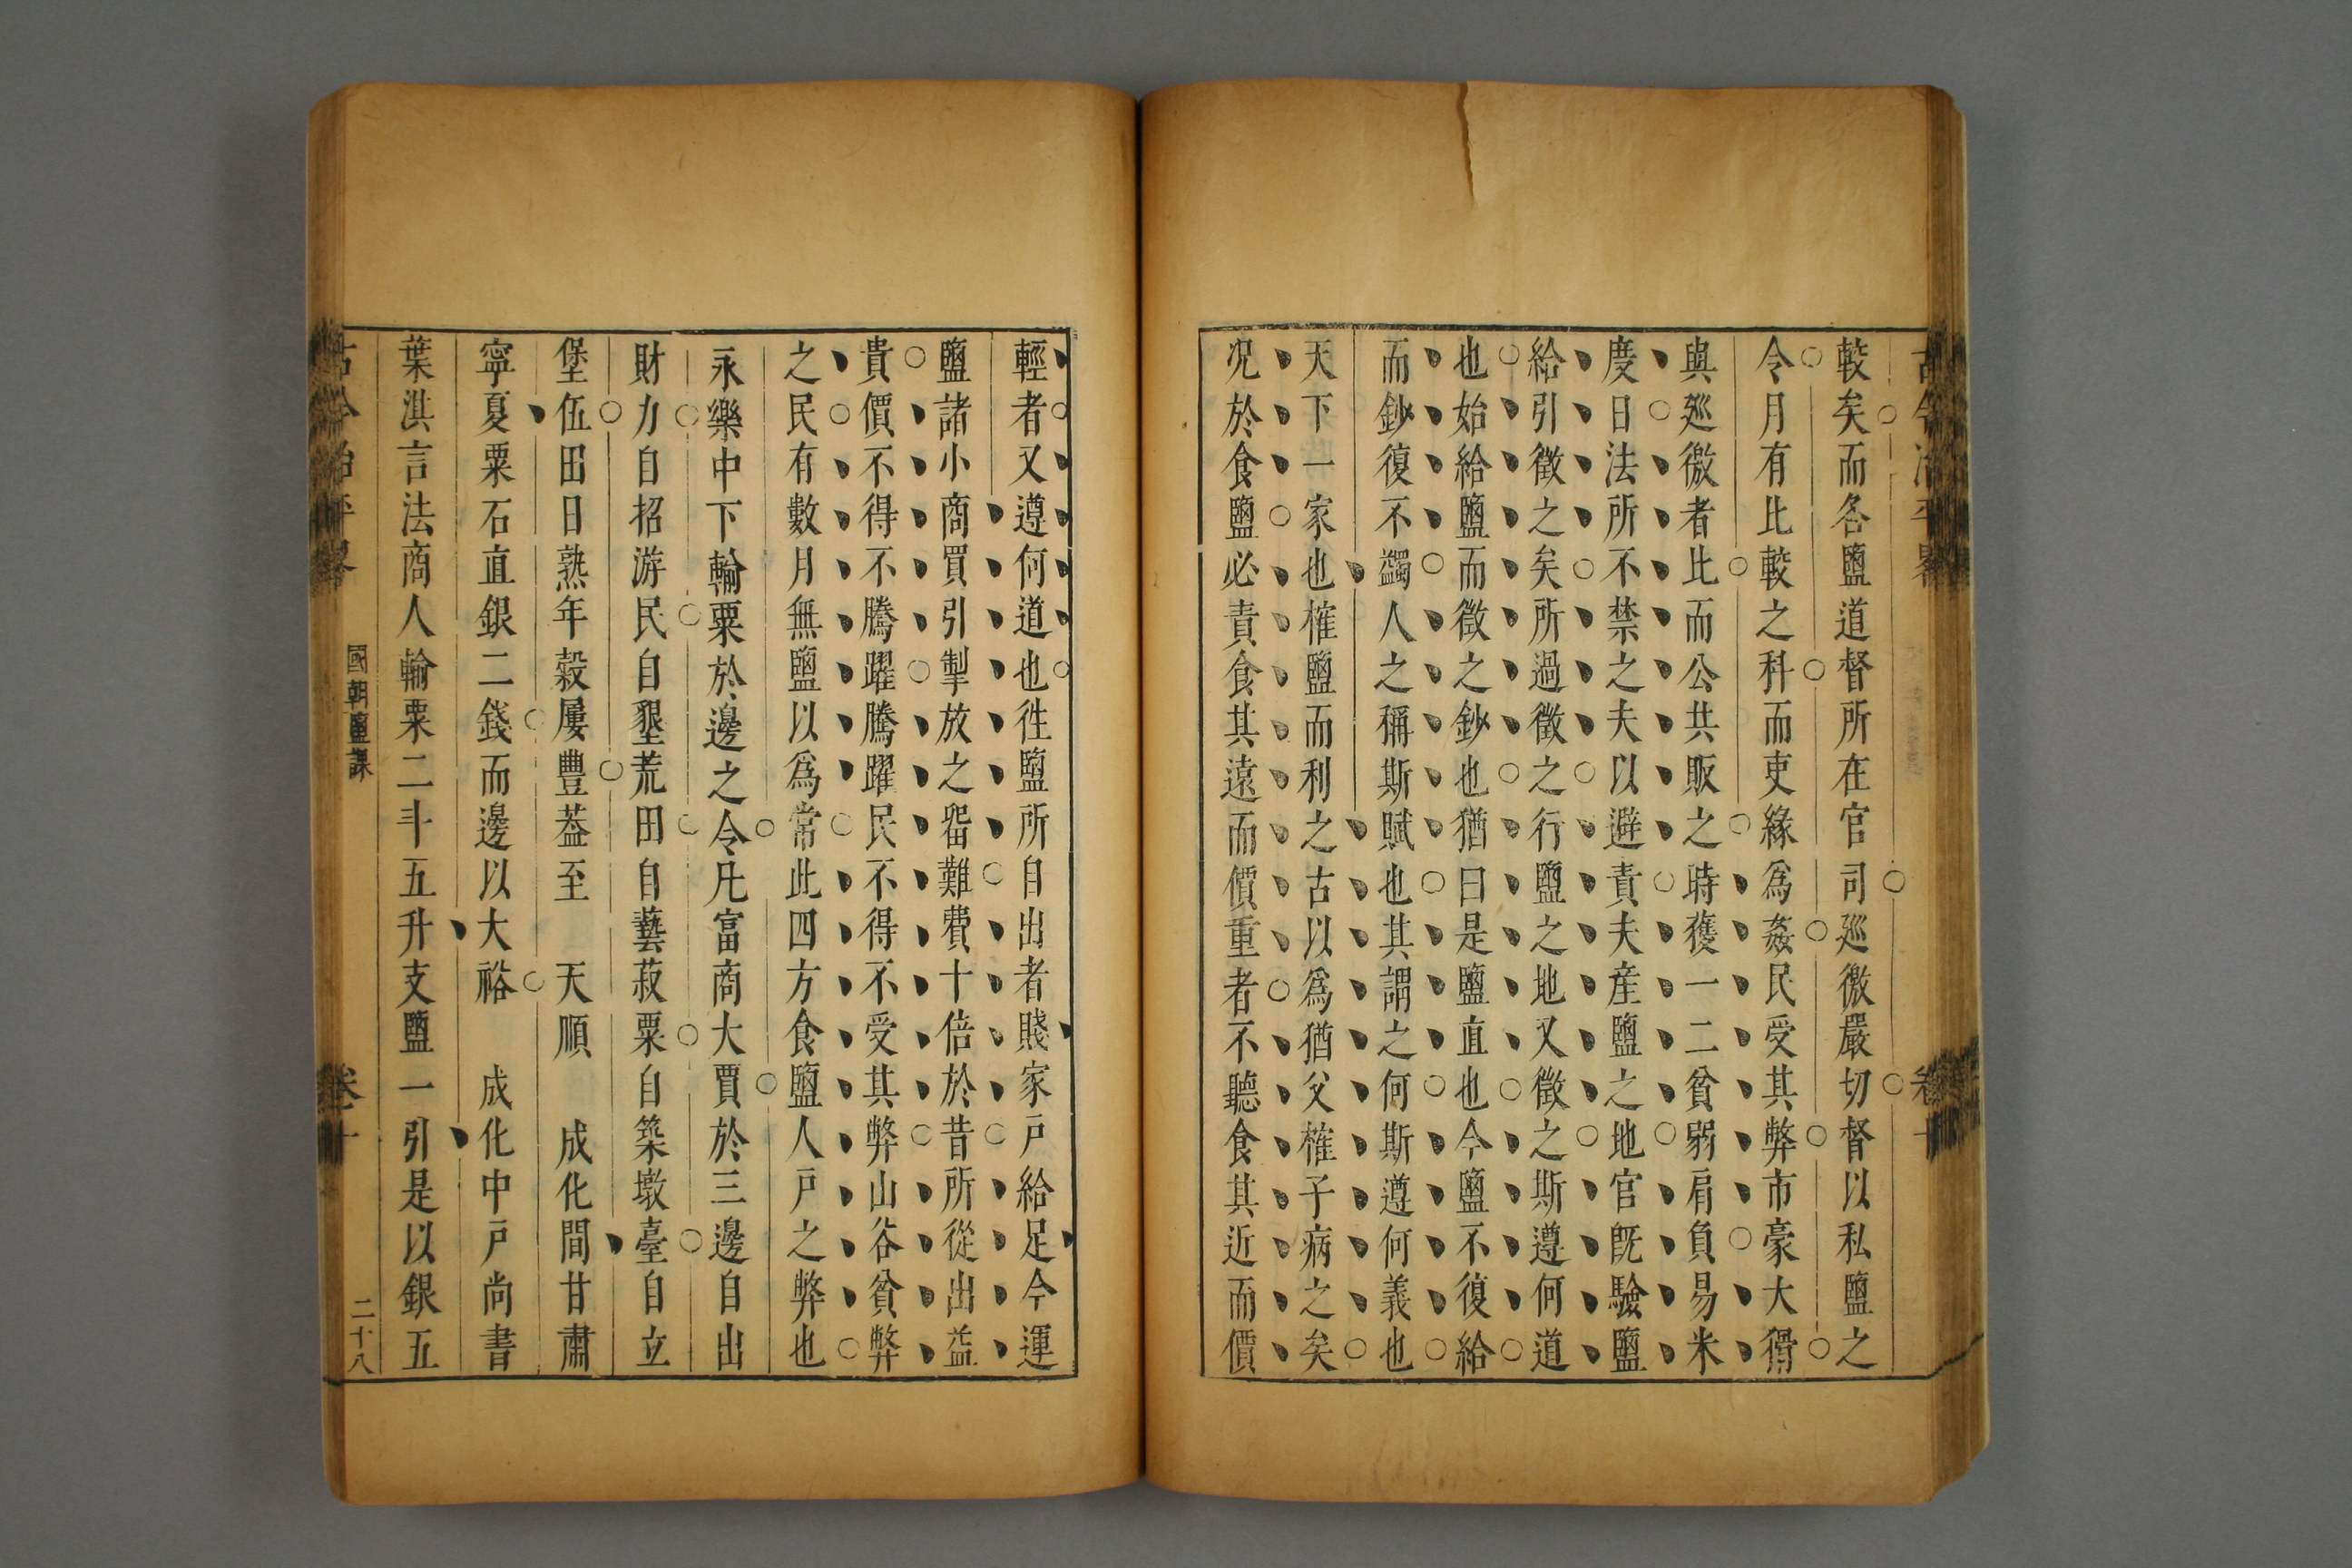 較矣而各鹽道督所在官司廵徼嚴切督以私鹽之
令月有比較之科而吏緣為姦民受其弊市豪大猾
與廵徼者比而公共販之時獲一二貧弱肩負易米
度日法所不禁之夫以避責夫產鹽之地官旣驗鹽
給引徵之矣所過徵之行鹽之地又徵之斯遵何道
也始給鹽而徵之鈔也猶曰是鹽直也今鹽不復給
而鈔復不蠲人之稱斯賦也其謂之何斯遵何義也
天下一家也榷鹽而利之古以爲猶父榷子病之矣
况於食鹽必責食其遠而價重者不聽食其近而價
輕者又遵何道也徃鹽所自出者賤家戸給足今運
鹽諸小商買引掣放之畱難費十倍於昔所從出益
貴價不得不騰躍騰躍民不得不受其弊山谷貧弊
之民有數月無鹽以爲常此四方食鹽人戸之弊也
永樂中下輸粟於邊之令凡富商大賈於三邊自出
財力自招游民自墾荒田自藝菽粟自築墩臺自立
堡伍田日熟年穀屢豐葢至 天順 成化間甘肅
寧夏粟石直銀二錢而邊以大裕 成化中戸尚書
葉淇言法商人輸粟二斗五升支鹽一引是以銀五
國朝鹽課
卷十
二十八